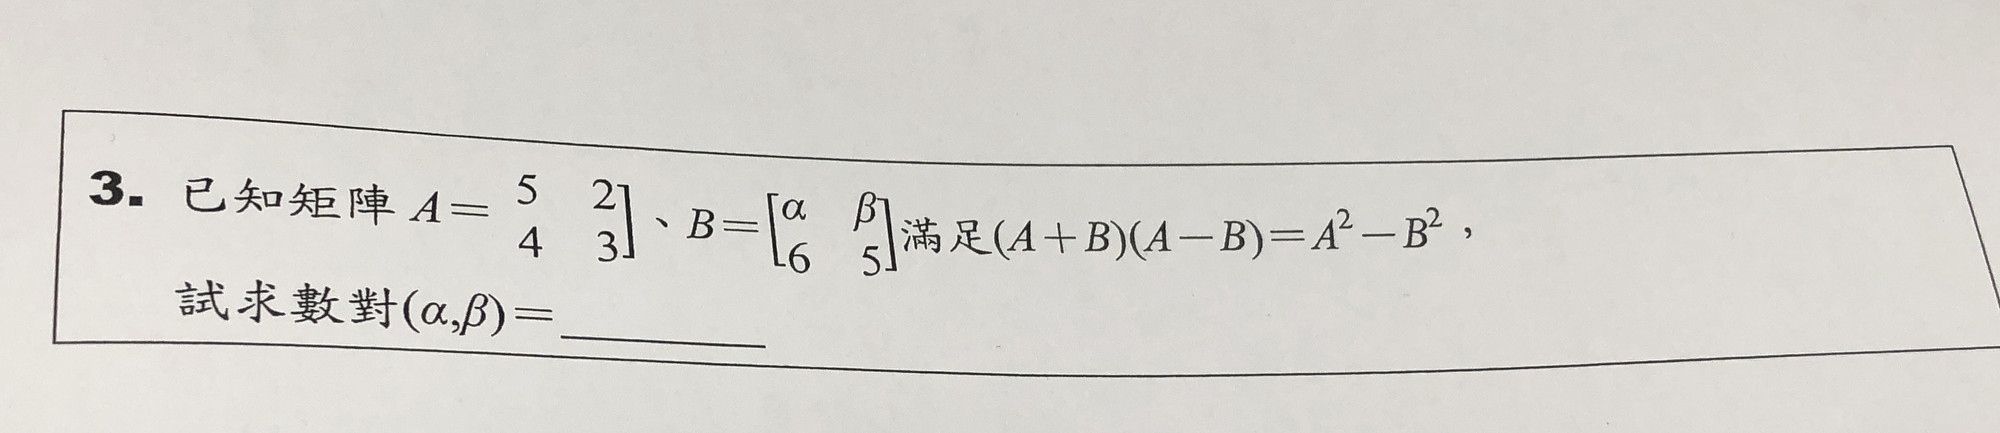 3. 已知矩陣 A= 5 2 4 3]、B=[α β 6 5]滿足(A+B)(A-B)=A²-B²,
試求數對(α,β)=______